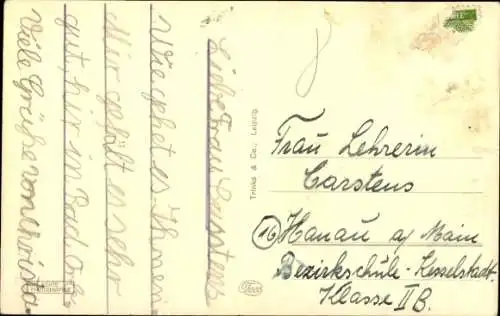 Liebe Frau Carstens
Wie geht es Ihnen
Mir gefält es sehr
gut, hir in Bad
Viele Grüße von
Trinks & Co., Leipzig
Frau Lehrerin
Carstens
(16) Hanau a/ Main
Bezirkschule - Kesselstadt.
Klasse II B.